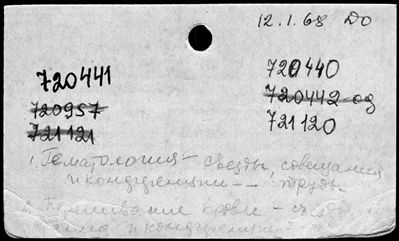 12.1.68 DO
720441
720440
720957
720442-од
721121
721120
1. Гематология - съезды, совещания
и конференции -- труды
2. Переливание крови - съезды
и конференции -